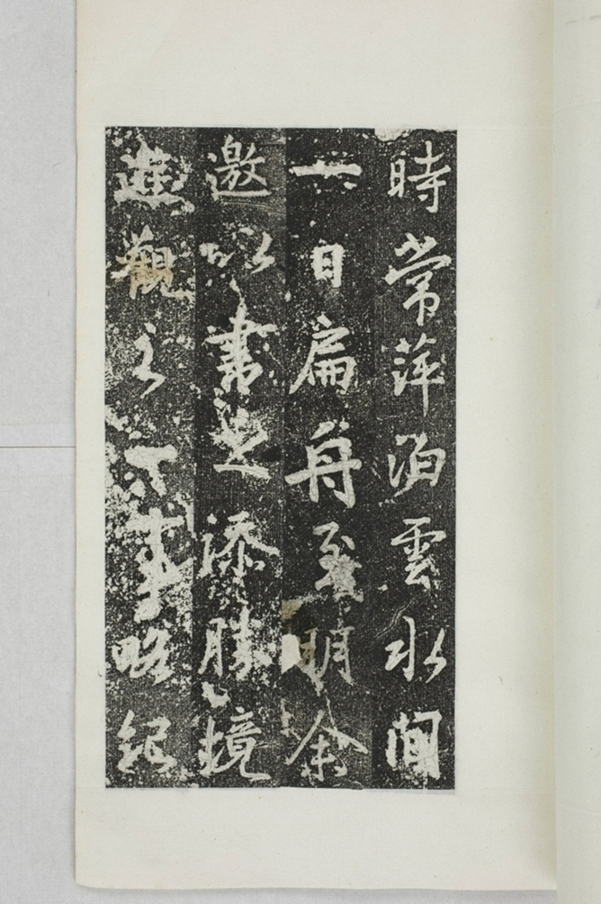 時常萍泊雲水間
一日扁舟至明余
邀以書迹添勝境
遊觀之一事略紀